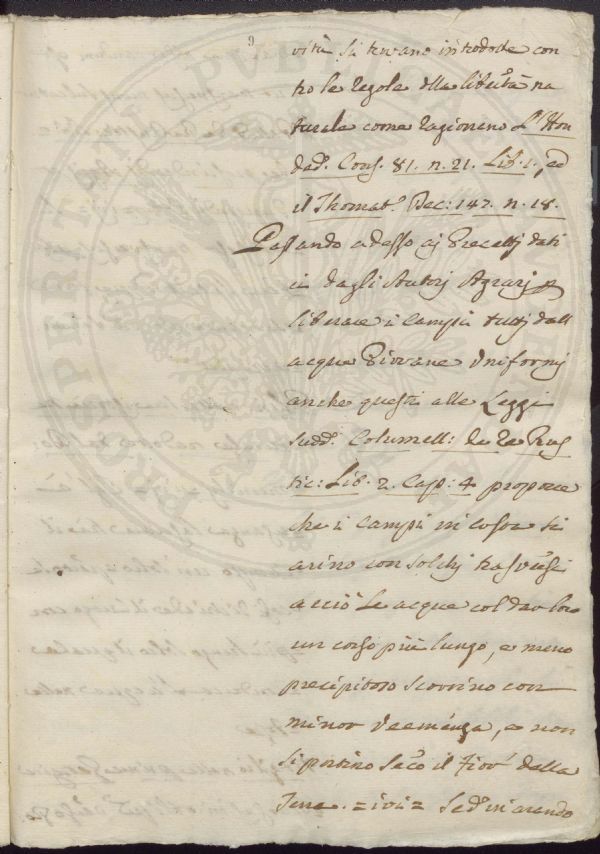 9
vitù si trovano introdotte con
tro le regole della libertà na
turale come ragionano L'Hon
ded. Cons. 81. n. 21. Lib. 1., ed
il Thomat. Dec: 147. n. 18.
Passando adesso ai Precetti dati
ci dagli Autori Agrarj p
liberare i Campi tutti dall
acque Piovane Uniformj
anche questi alle Leggi
sudd. Columell: de Re Rus
tic: Lib. 2. Cap: 4 propone
che i Campi in costa si
arino con solchj trasversi
acciò Le acque col dar loro
un corso più lungo, e meno
precipitoso scorrino con
minor Veemenza, e non
si portino seco il Fior della
Terra. = ivi = Sed in arando